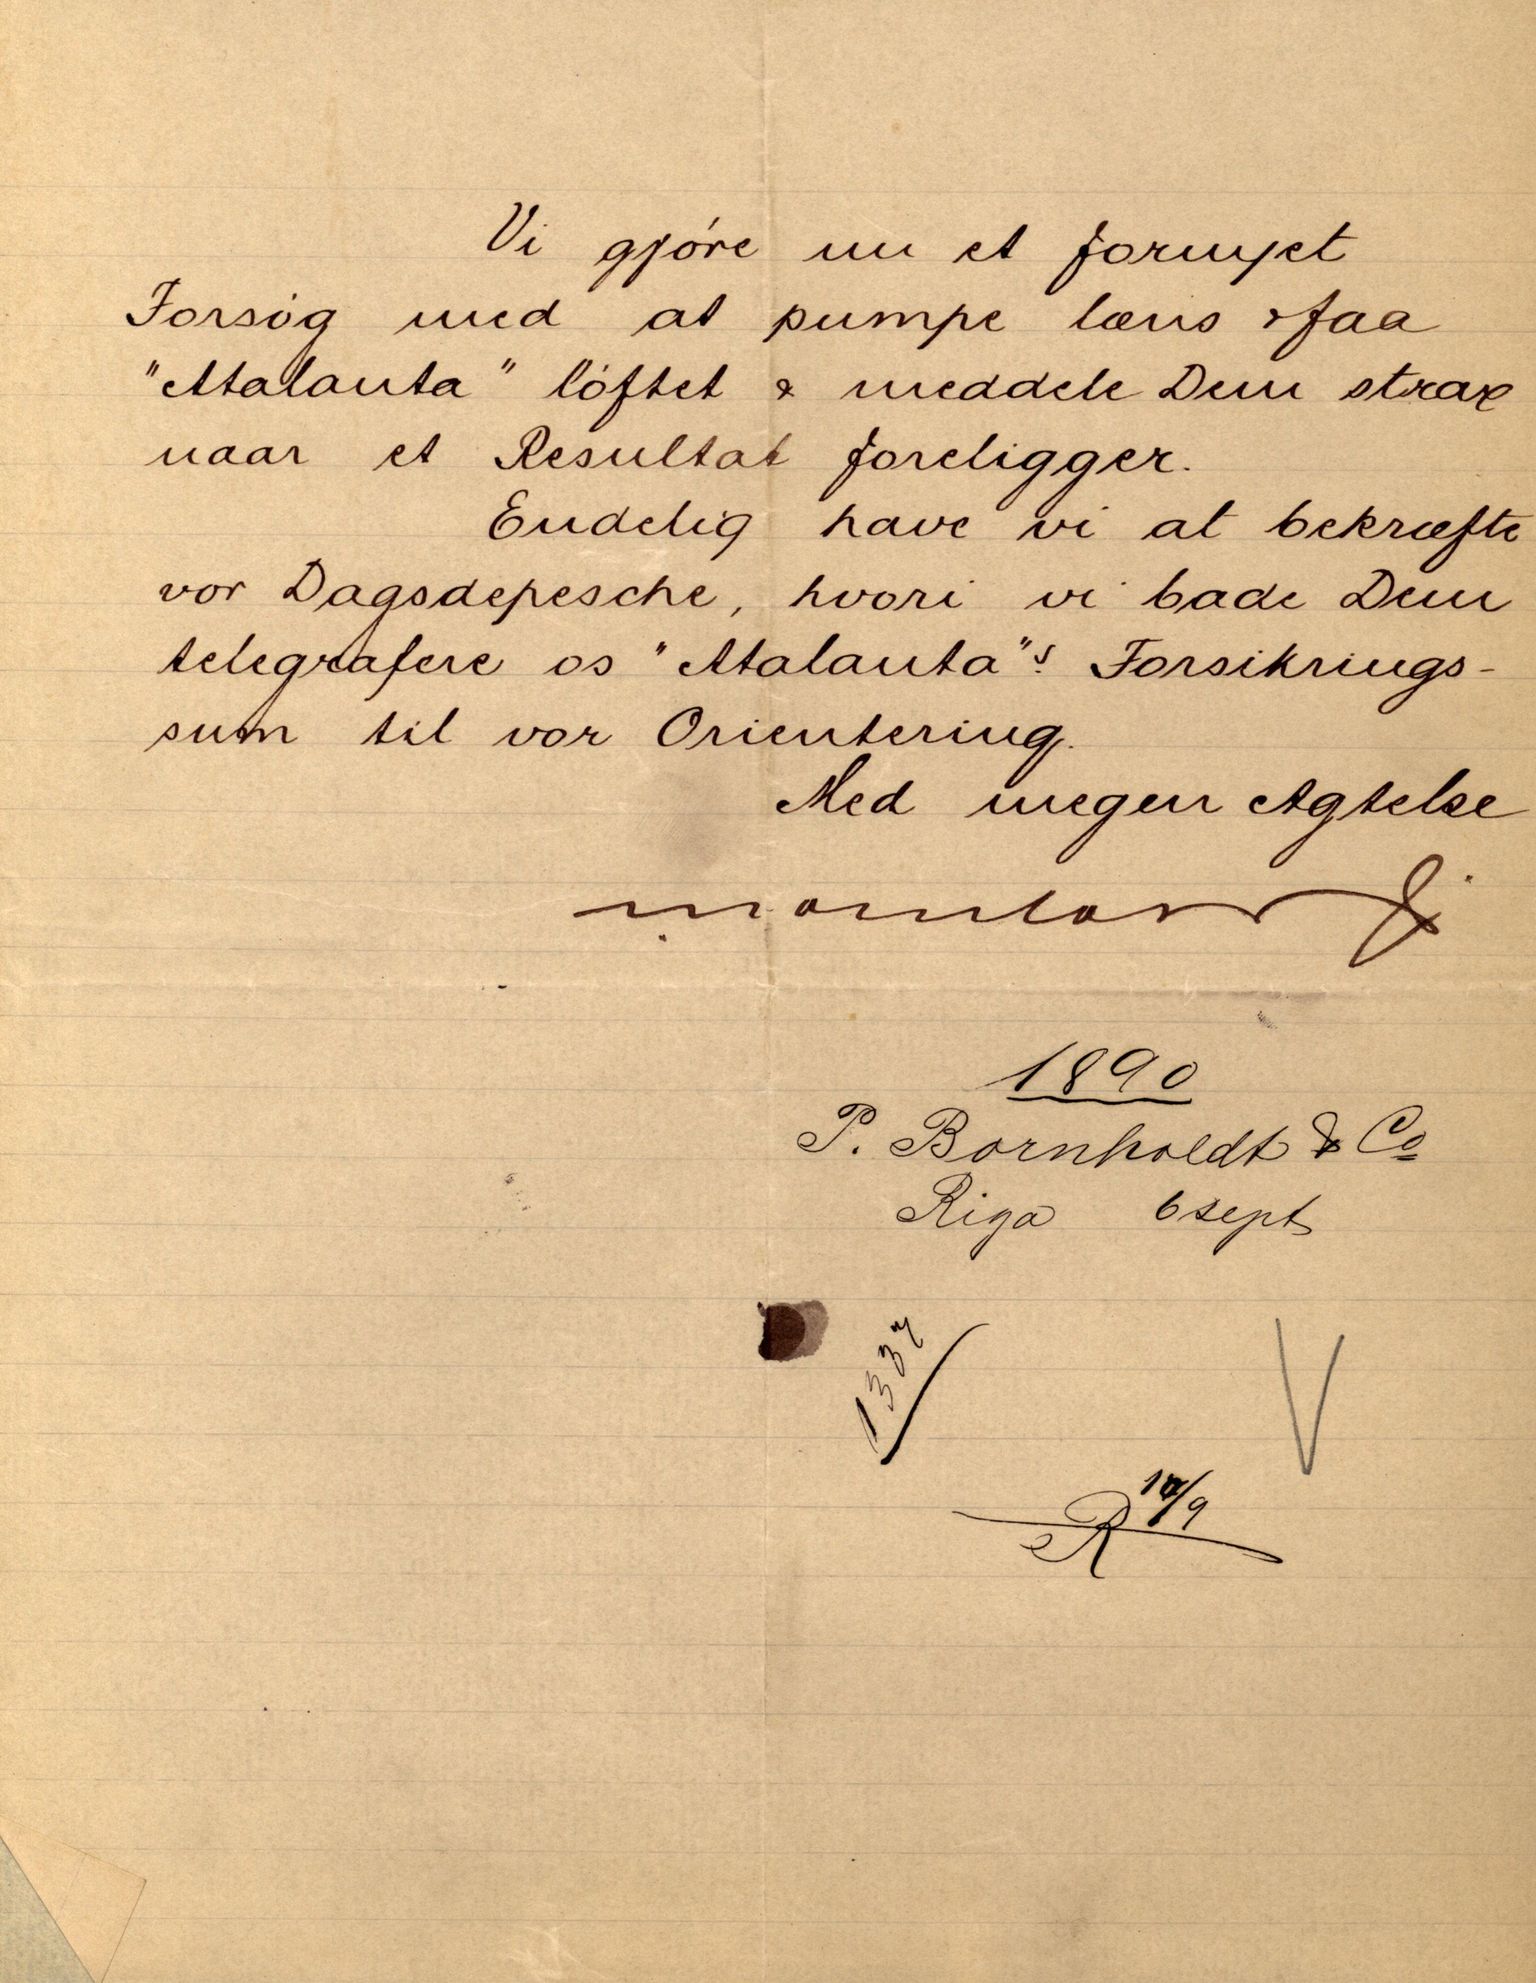 Vi gjóre nu et fornyet
Forsóg med at pumpe læns & faa
"Atalanta" lóftet & meddele Dem strax
naar et Resultat foreligger.
Endelig have vi at bekræfte
vor Dagsdepesche, hvori vi bade Dem
telegrafere os "Atalanta"s Forsikrings-
sum til vor Orientering.
Med megen Agtelse
1890
P. Bornholdt & Co
Riga 6 sept
133
R /9